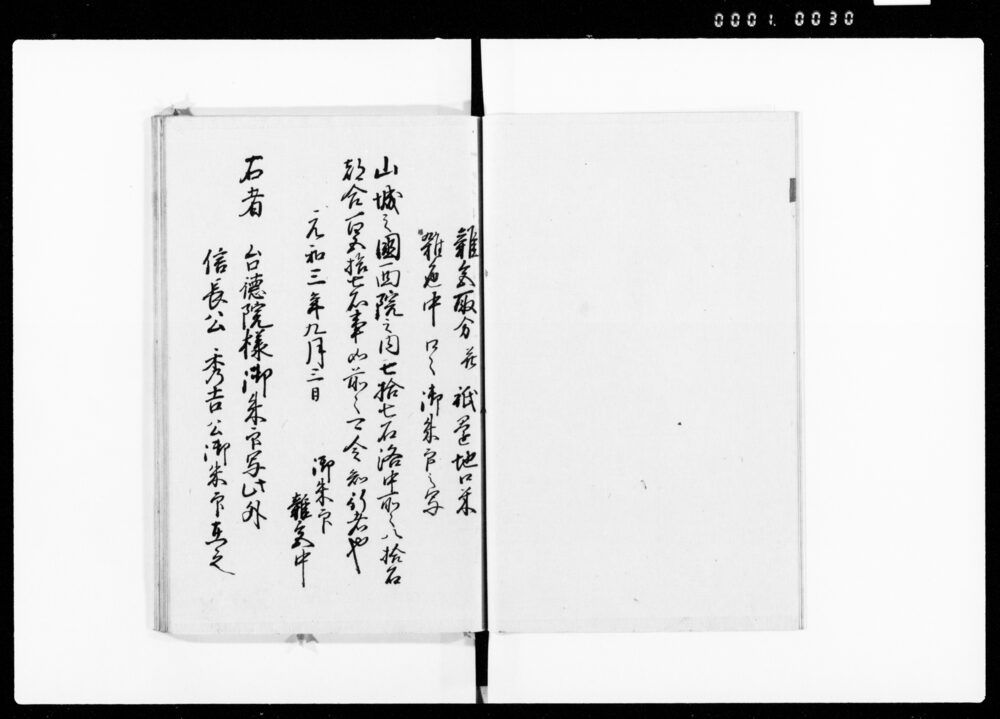 0001. 0030
雜色取分并祇園地口米
雜色中口々御朱印之写
山城之國西院之内七拾七石洛中所々八拾石
都合百五拾七石事如前々可令知行者也
元和三年九月三日
御朱印
雜色中
右者 台德院樣御朱印写此外
信長公 秀吉公御朱印有之